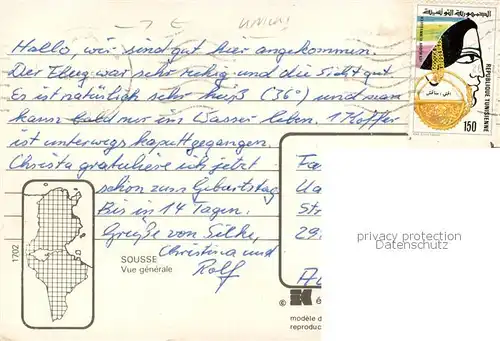 Hallo, wir sind gut hier angekommen.
Der Flug war sehr ruhig und die Sicht gut
Es ist natürlich sehr heiß (36°) und man
kann bald nur im Wasser leben. 1 Koffer
ist unterwegs kaputtgegangen.
Christa gratuliere ich jetzt
schon zum Geburtstag
Bis in 14 Tagen.
Grüße von Silke,
Christina und
Rolf
الجمهورية التونسية
REPUBLIQUE TUNISIENNE
150
1702
SOUSSE
Vue générale
Fa
Ua
Str
29
Au
©
é
modèle d
reproduc
privacy protection
Datenschutz